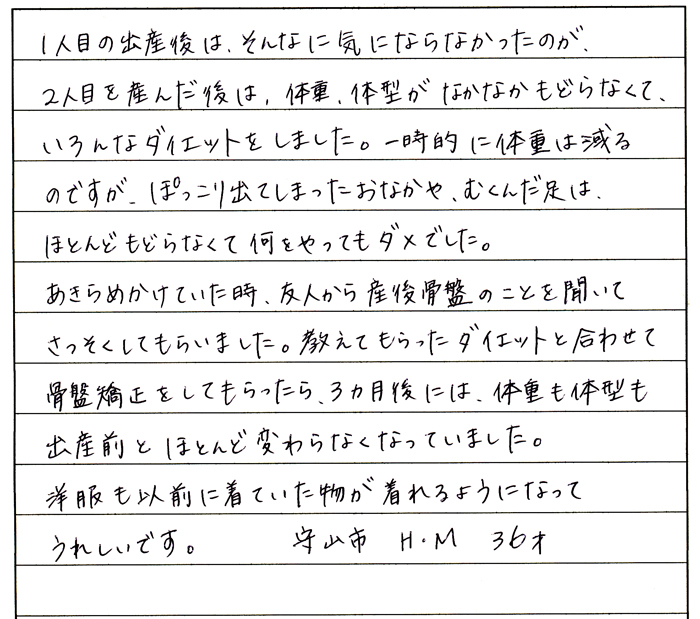 1人目の出産後は、そんなに気にならなかったのが、
2人目を産んだ後は、体重、体型がなかなかもどらなくて、
いろんなダイエットをしました。一時的に体重は減る
のですが、ぽっこり出てしまったおなかや、むくんだ足は、
ほとんどもどらなくて何をやってもダメでした。
あきらめかけていた時、友人から産後骨盤のことを聞いて
さっそくしてもらいました。教えてもらったダイエットと合わせて
骨盤矯正をしてもらったら、3カ月後には、体重も体型も
出産前とほとんど変わらなくなっていました。
洋服も以前に着ていた物が着れるようになって
うれしいです。 守山市 H・M 36才